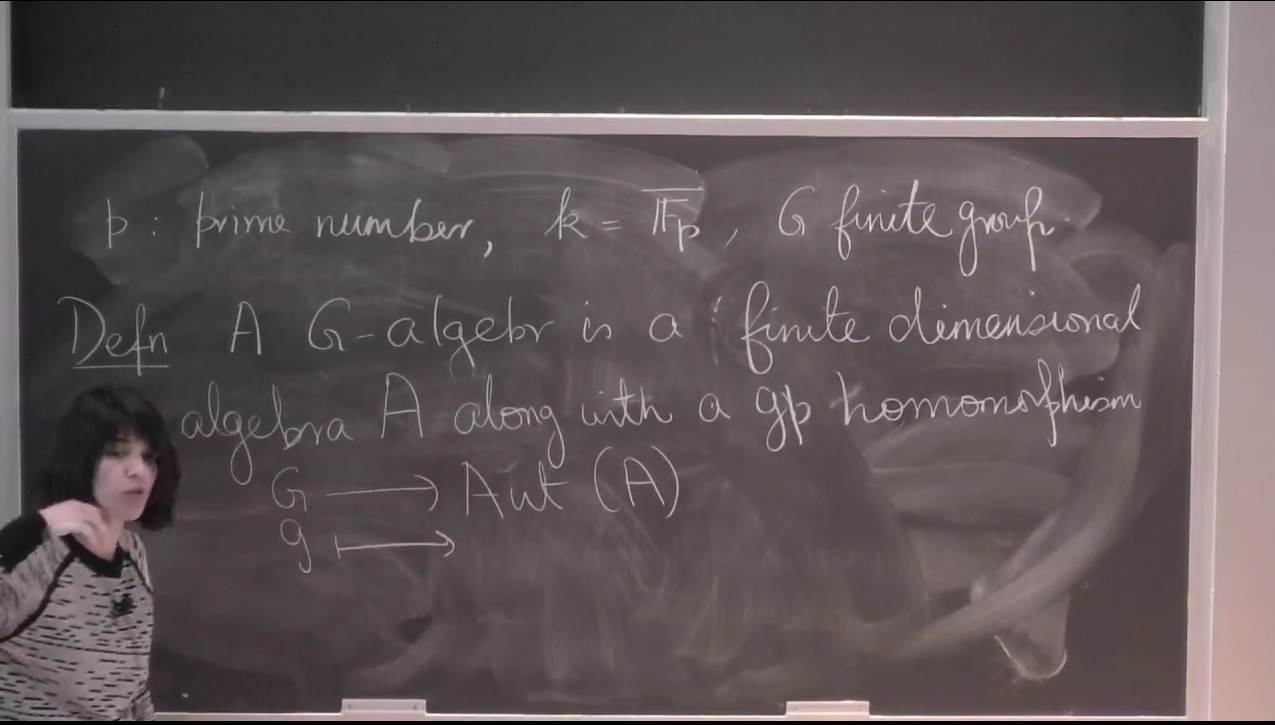 p : prime number, k = \overline{𝔽_p}, G finite group.
Defn A G-algebr is a finite dimensional
algebra A along with a gp homomorphism
G ⟶ Aut (A)
g ⟼